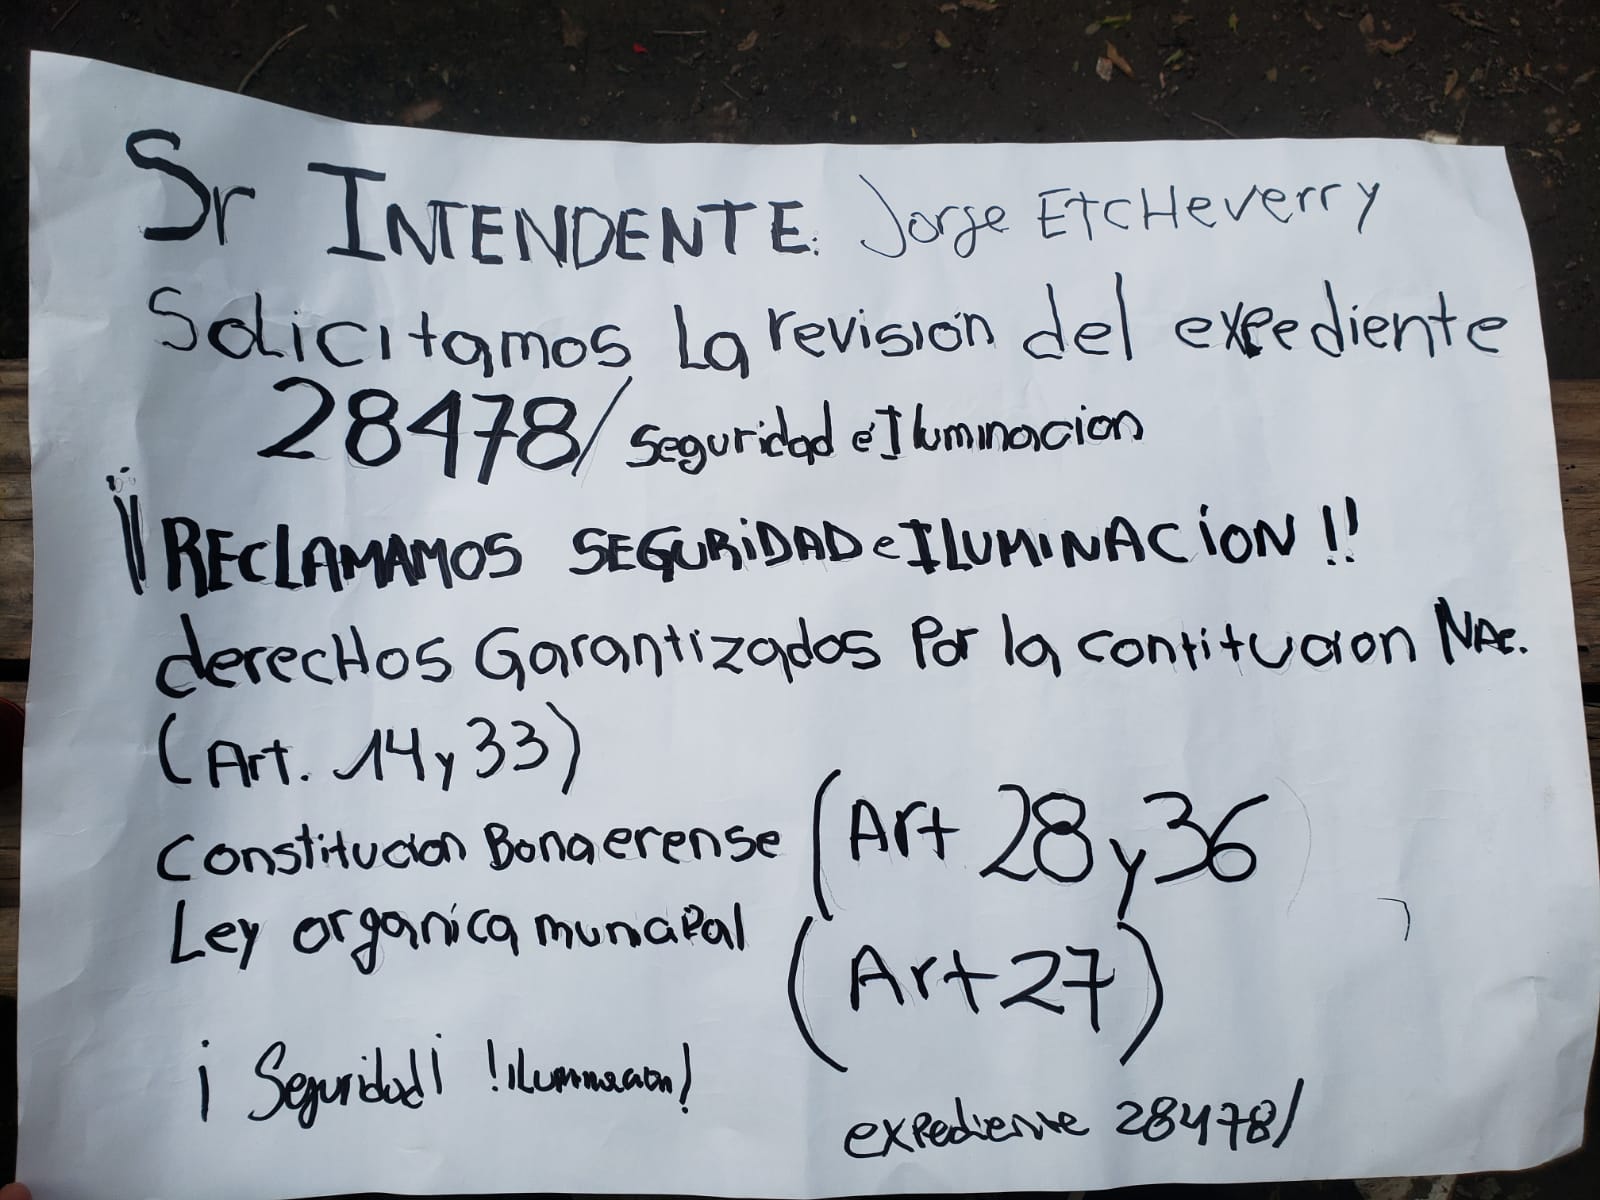 Sr INTENDENTE: Jorge ETCHeverry
Solicitamos La revisión del expediente
28478/ seguridad e Iluminacion
¡¡RECLAMAMOS SEGURiDAD e ILUMINACIÓN!!
derecHos Garantizados Por la contitucion NAc.
(Art. 14 y 33)
Constitucion Bonaerense (Art 28 y 36
Ley organica municiPal (Art 27)
¡Seguridad! !iluminacion!
expediente 28478/